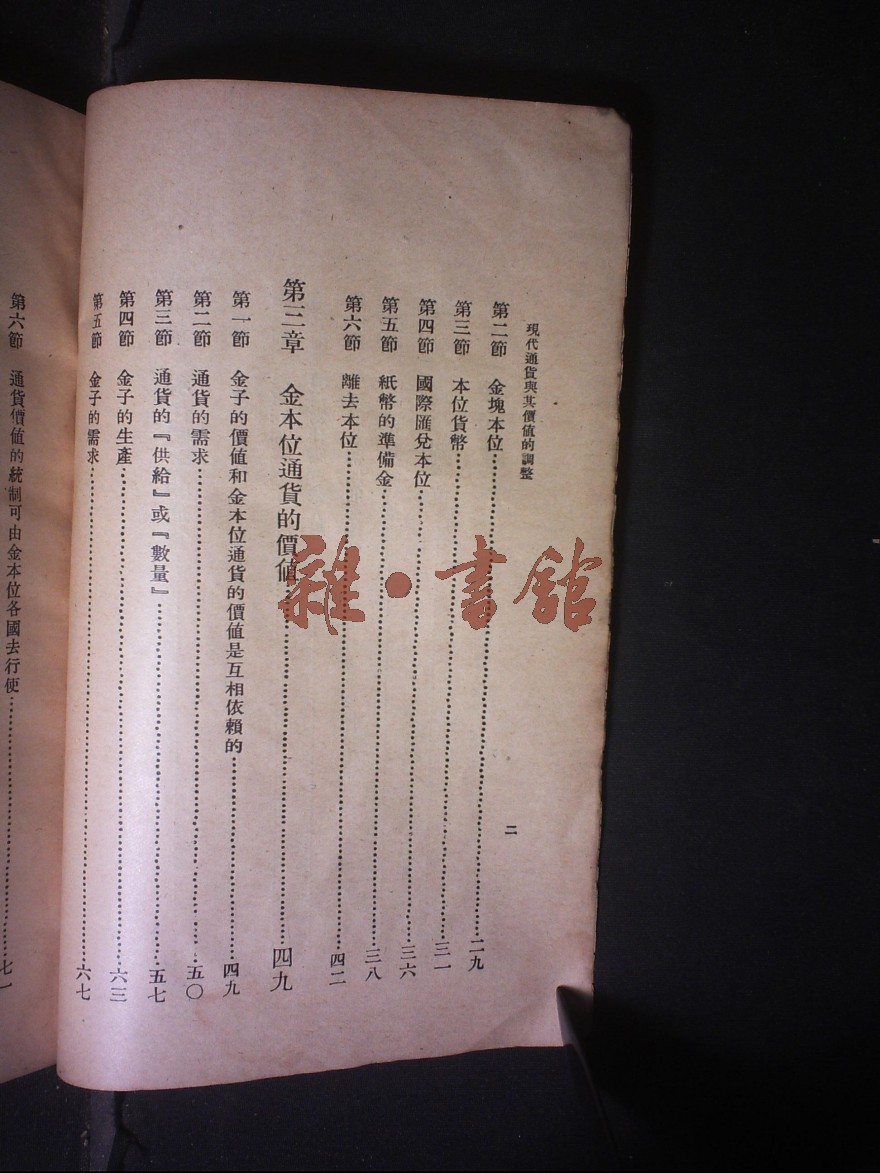 現代通貨與其價値的調整
二
第二節 金塊本位……二九
第三節 本位貨幣……三一
第四節 國際匯兌本位……三六
第五節 紙幣的準備金……三八
第六節 離去本位……四二
第三章 金本位通貨的價値……四九
第一節 金子的價値和金本位通貨的價値是互相依賴的……四九
第二節 通貨的需求……五〇
第三節 通貨的『供給』或『數量』……五七
第四節 金子的生產……六三
第五節 金子的需求……六七
第六節 通貨價値的統制可由金本位各國去行使……七一
雜·書館